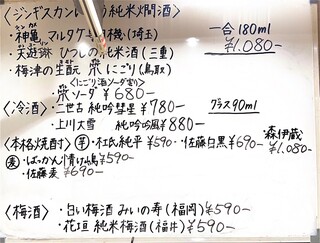 〈ジンギスカンに合う純米燗酒〉
・神亀 マルタケ 機(埼玉)
一合 180ml
¥1,080-
・英 ひつじの純米酒(三重)
・梅津の生酛 にごり(鳥取)
〈にごり酒ソーダ割り〉
ソーダ ¥680-
〈冷酒〉・二世古 純吟彗星 ¥780-
グラス90ml
・上川大雪 純吟吟風 ¥880-
〈本格焼酎〉芋・杜氏純平 ¥590- ・佐藤白黒 ¥690-
・森伊蔵 ¥1,080-
麦・ばっかん 青鹿毛 ¥590-
・佐藤麦 ¥690-
〈梅酒〉・白い梅酒 みいの寿(福岡) ¥590-
・花垣 純米梅酒(福井) ¥590-